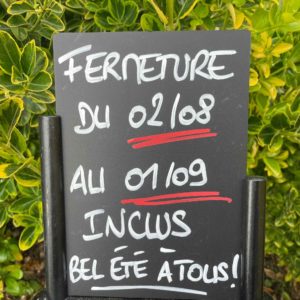 FERMETURE
DU 02/08
AU 01/09
INCLUS
BEL ÉTÉ À TOUS!